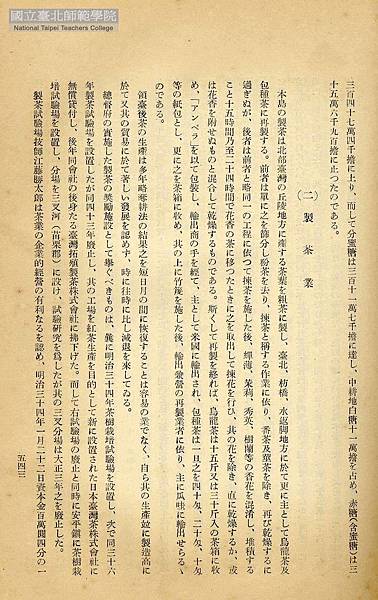 國立臺北師範學院
National Taipei Teachers College
三百四十七萬四千擔に上り、而して分蜜糖は三百十一萬七千擔に達し、中耕地白糖十一萬擔を占め、赤糖(含蜜糖)は三
十五萬六千九百擔に止つたのである。
(二) 製茶業
本島の製茶は北部臺灣の丘陵地方に產する茶葉を粗茶に製し、臺北、枋橋、水返脚地方に於て更に主として烏龍茶及
包種茶に再製する。前者は單に之を篩分し粉茶を去り、揀茶と稱する作業に依り、番茶及莖茶を除き、再び乾燥するに
過ぎぬが、後者は前者と略同一の工程に依つて揀茶を施した後、梔薄、茉莉、秀英、樹蘭等の香花を混淆し、堆積する
こと十五時間乃至二十四時間で花香の茶に移つたときに之を取出して揀花を行ひ、其の花を除き、直に乾燥するか、或
は花香を附せぬものと混合して乾燥するものである。斯くして再製を終れば、烏龍茶は十五斤又は三十斤入の茶箱に收
め、「アンペラ」を以て包裝し、輸出商の手を經て、主として米國に輸出され、包種茶は一旦之を四十匁、二十匁、十匁
等の紙包とし、更に之を茶箱に收め、其の上に竹篾を施した後、輸出兼營の再製業者に依り、主に瓜哇に輸出せらるゝ
のである。
領臺後茶の生產は多年略奪耕法の結果之を短日月の間に恢復することは容易の業でなく、自ら其の生產竝に製造高に
於て又其の貿易に於て著しい發展を認めず、時に往時に比し減退を來してゐる。
總督府の實施した製茶の奬勵施設として擧ぐべきものは、僅に明治三十四年茶樹栽培試驗場を設置し、次で同三十六
年製茶試驗場を設置したが同四十三年廢止し、其の工場を紅茶生產を目的として新に設置された日本臺灣茶株式會社に
無償貸付し、後年同會社の後身たる臺灣拓殖製茶株式會社に拂下げた。而して右試驗場の廢止と同時に安平鎭に茶樹栽
培試驗場を設置し、分場を三叉河(苗栗郡)に設け、試驗硏究を爲したが其の三叉分場は大正三年之を廢止した。
製茶試驗場技師江藤勝太郎は茶業の企業的經營の有利なるを認め、明治三十四年一月二十二日資本金百萬圓四分の一
五四三